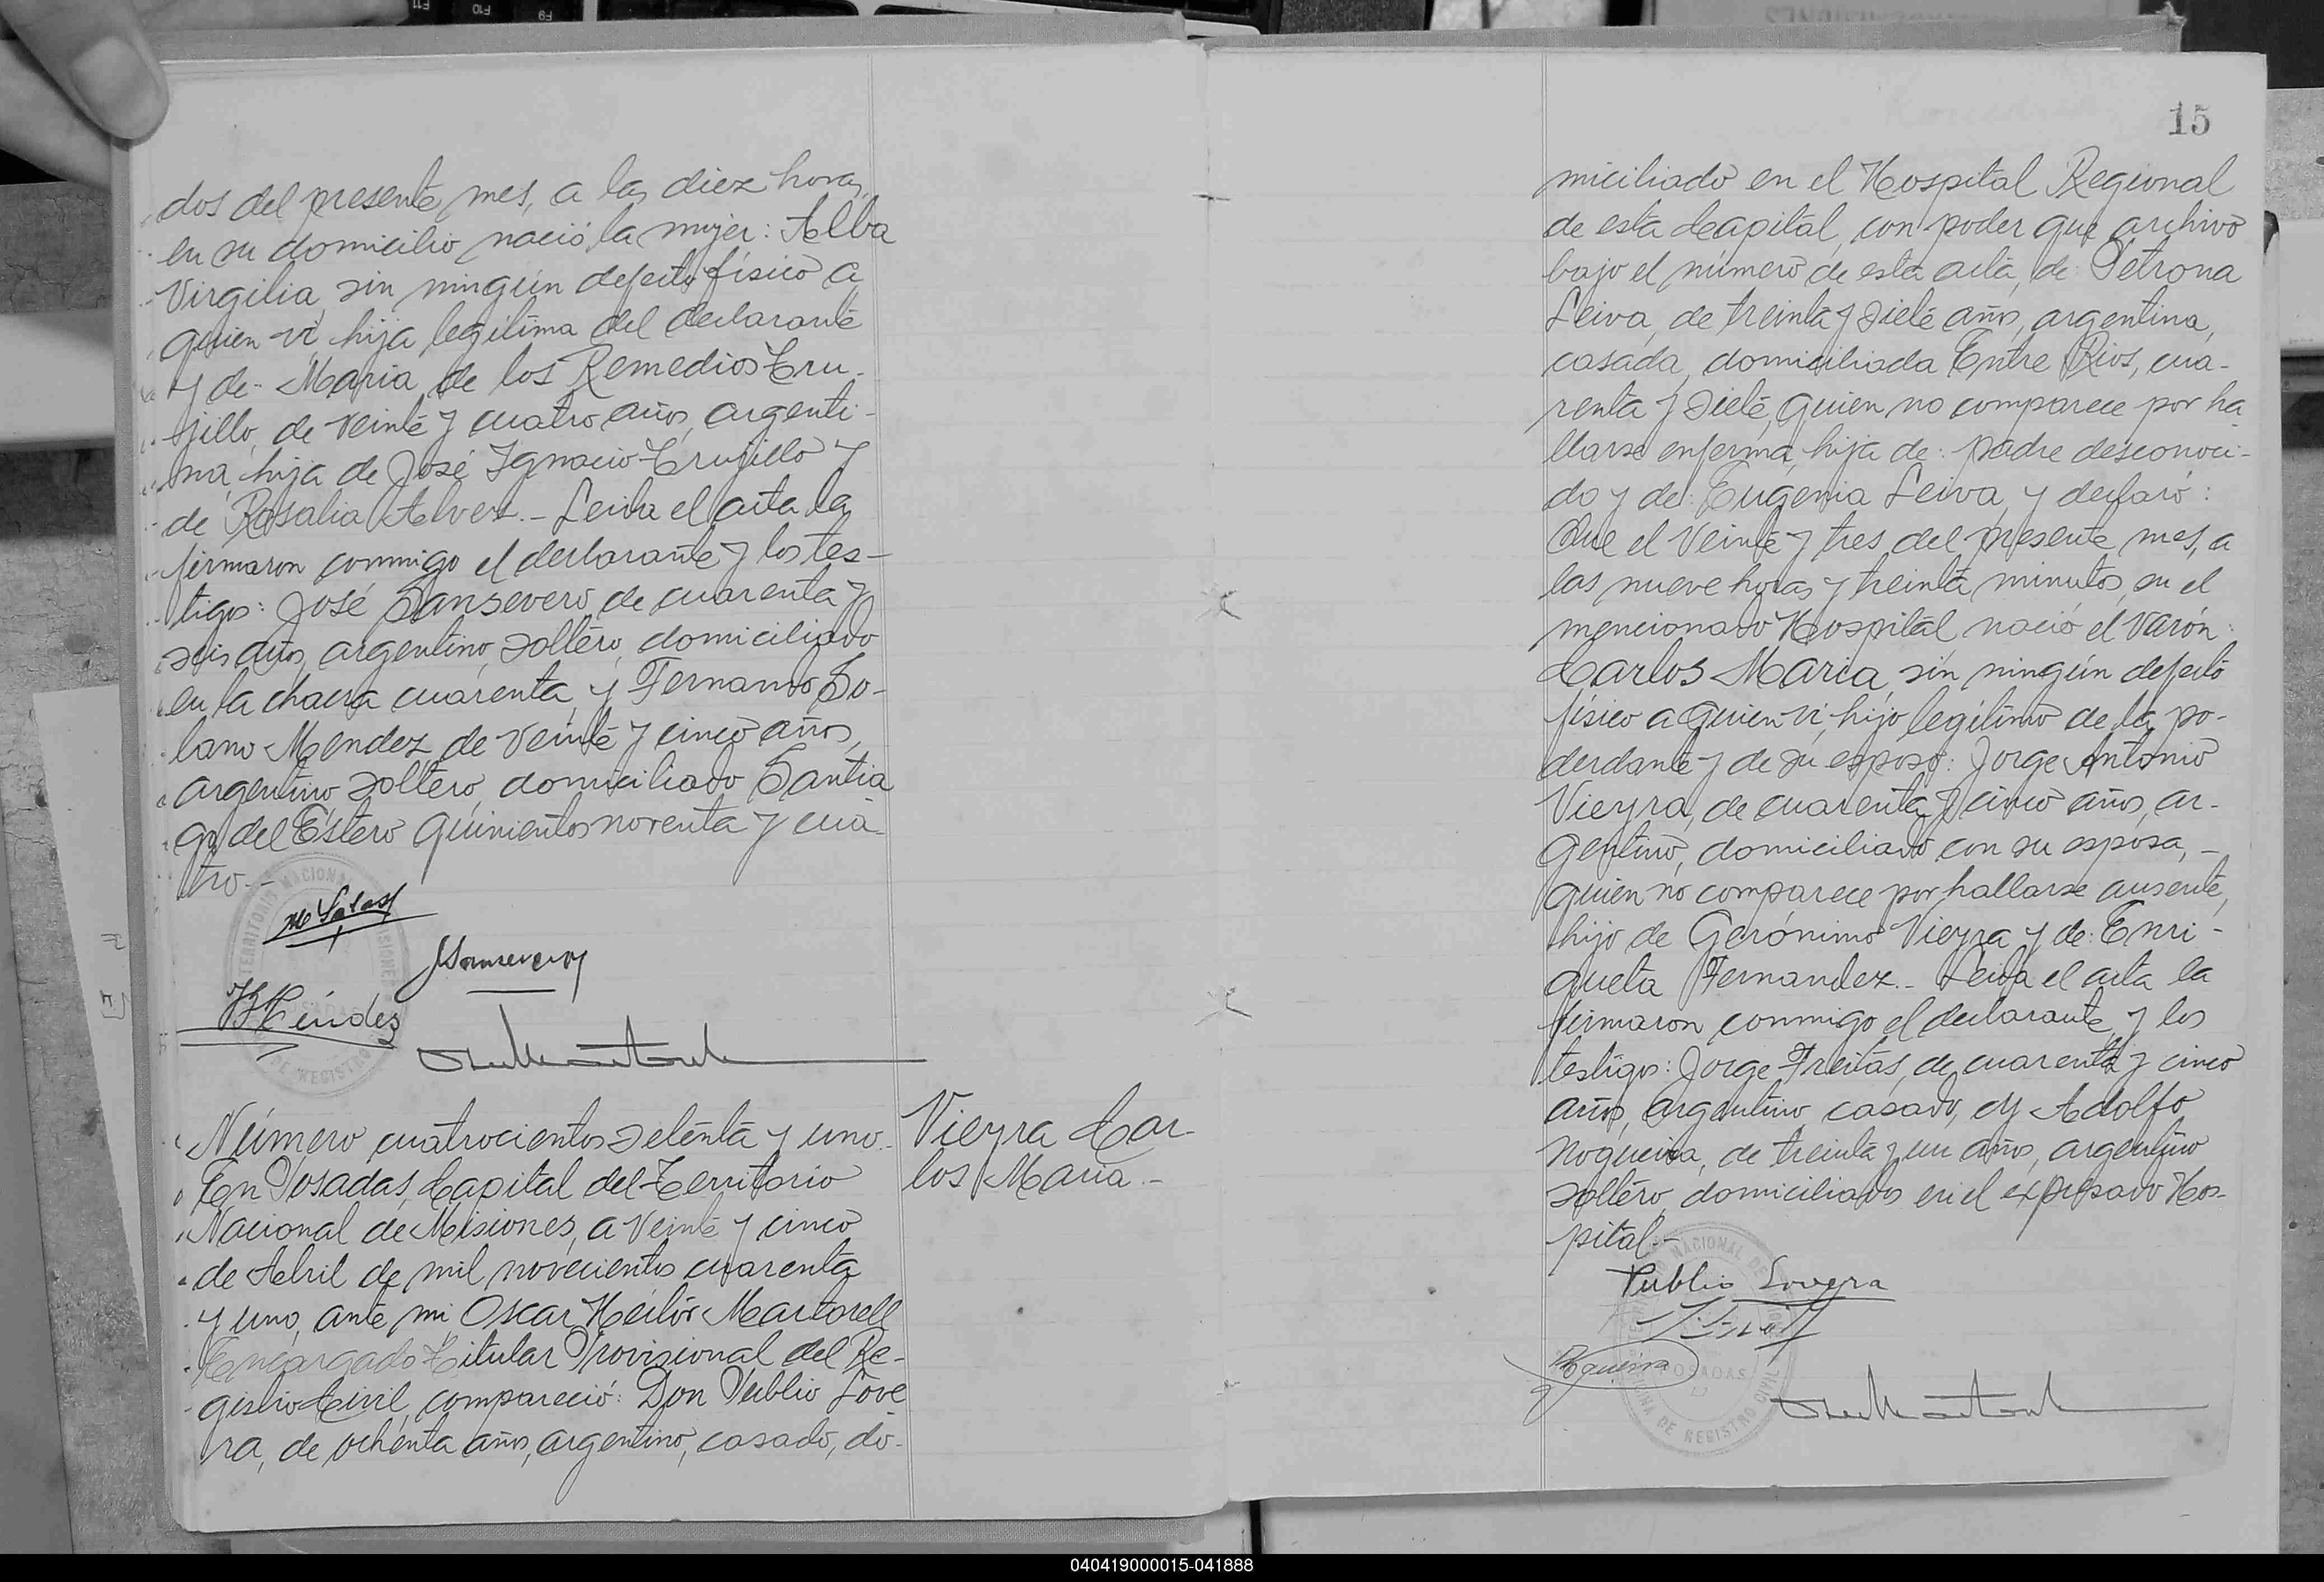 dos del presente mes, a las diez horas,
en su domicilio nació la mujer: Alba
Virgilia, sin ningún defecto físico a
quien vi, hija legítima del declarante
y de María de los Remedios Tru-
jillo, de veinte y cuatro años, argenti-
na, hija de José Ignacio Trujillo y
de Rosalia Alvez.- Leida el acta la
firmaron conmigo el declarante y los tes-
tigos: José Sansevero, de cuarenta y
seis años, argentino, soltero, domiciliado
en la chacra cuarenta, y Fernando So-
lano Mendez, de veinte y cinco años,
argentino, soltero, domiciliado Santia
go del Estero quinientos noventa y cua-
tro.-
Número cuatrocientos setenta y uno.
En Posadas, Capital del Territorio
Nacional de Misiones, a veinte y cinco
de Abril de mil novecientos cuarenta
y uno, ante mi Oscar Heitór Martorell
Encargado Titular Provisional del Re-
gistro Civil, compareció: Don Publio Love
ra, de ochenta años, argentino, casado, do-
Vieyra Car-
los María.-
15
miciliado en el Hospital Regional
de esta Capital, con poder que archivo
bajo el número de esta acta, de Petrona
Leiva, de treinta y siete años, argentina,
casada, domiciliada Entre Rios, cua-
renta y siete, quien no comparece por ha
llarse enferma, hija de: padre desconoci-
do y de: Eugenia Leiva, y declaró:
Que el veinte y tres del presente mes, a
las nueve horas y treinta minutos, en el
mencionado Hospital nació el varón:
Carlos María, sin ningún defecto
físico a quien vi, hijo legítimo de la po-
derdante y de su esposo: Jorge Antonio
Vieyra, de cuarenta y cinco años, ar-
gentino, domiciliado con su esposa, -
quien no comparece por hallarse ausente,
hijo de Gerónimo Vieyra y de: Enri-
queta Fernandez.- Leida el acta la
firmaron conmigo el declarante y los
testigos: Jorge Freitas, de cuarenta y cinco
años, argentino, casado, y Adolfo
Nogueira, de treinta y un años, argentino
soltero, domiciliados en el expresado Hos-
pital.-
Publio Lovera
040419000015-041888